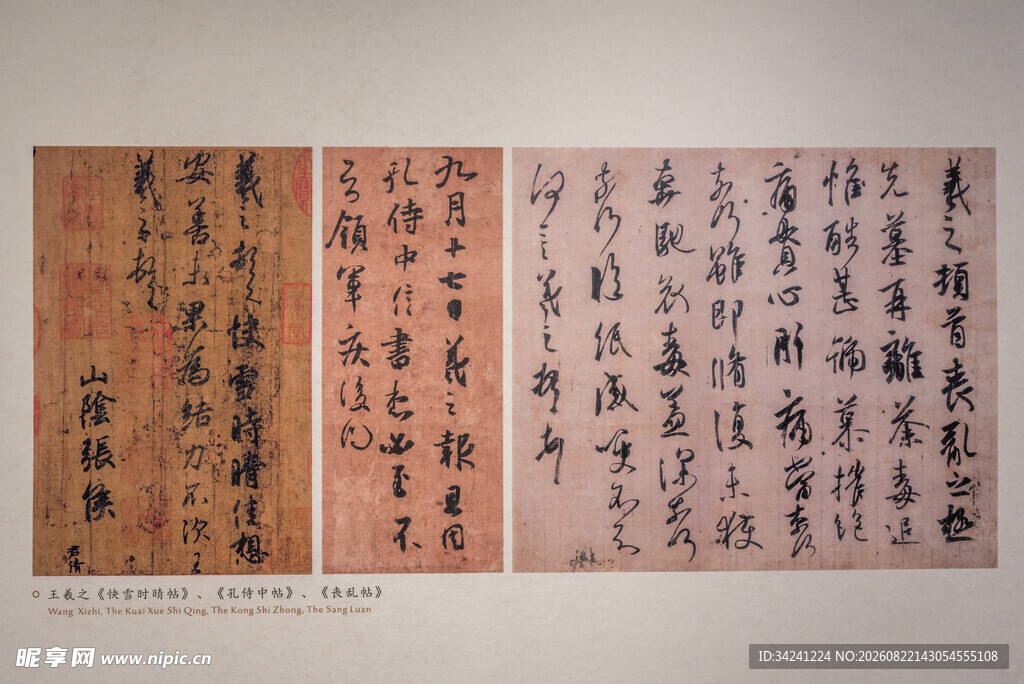 羲之頓首快雪時晴佳想
安善未果為結力不次王
羲之頓首
山陰張侯
君倩
九月十七日羲之報且因
孔侍中信書想必至不
知領軍疾後問
羲之頓首喪亂之極
先墓再離荼毒追
惟酷甚號慕摧絕
痛貫心肝痛當奈何
奈何雖即脩復未獲
奔馳哀毒益深奈何
奈何臨紙感哽不知
何言羲之頓首頓首
王羲之《快雪时晴帖》、《孔侍中帖》、《丧乱帖》
Wang Xizhi, The Kuai Xue Shi Qing, The Kong Shi Zhong, The Sang Luan
昵享网 www.nipic.cn
ID:34241224 NO:20260822143054555108